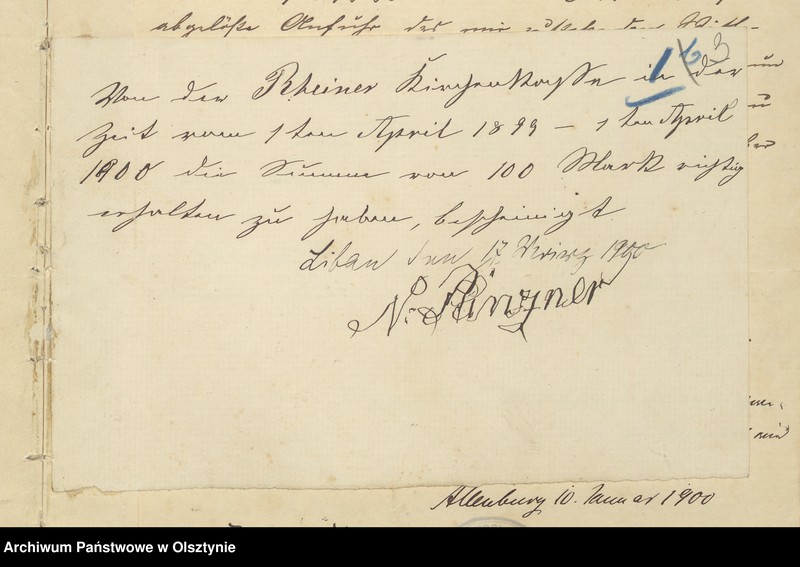 abgelöste Anfuhr des mir
Von der Rheiner Kirchenkasse in der
Zeit vom 1ten April 1899 – 1ten April
1900 die Summe von 100 Mark richtig
erhalten zu haben, bescheinigt
Liban den 17 März 1900
N.
1
Allenburg 10. Januar 1900
Archiwum Państwowe w Olsztynie